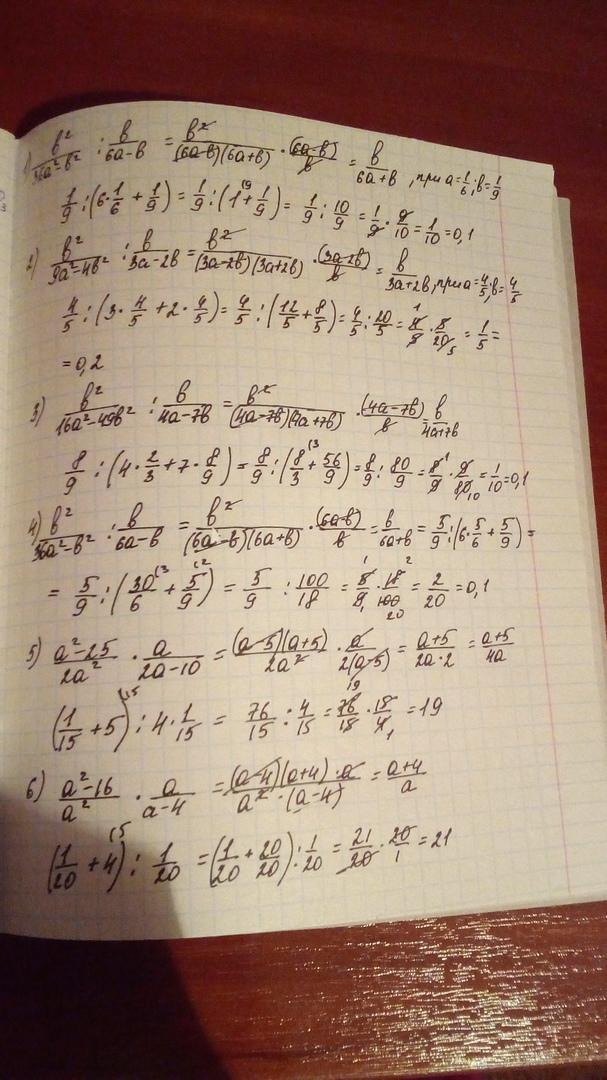 1) в²/(36а²-в²) : в/(6а-в) = в²/((6а-в)(6а+в)) · (6а-в)/в = в/(6а+в), при а=1/6; в=1/9
1/9 : (6·1/6 + 1/9) = 1/9 : (1 + 1/9) = 1/9 : 10/9 = 1/9 · 9/10 = 1/10 = 0,1
2) в²/(9а²-4в²) : в/(3а-2в) = в²/((3а-2в)(3а+2в)) · (3а-2в)/в = в/(3а+2в), при а=4/5; в=4/5
4/5 : (3·4/5 + 2·4/5) = 4/5 : (12/5 + 8/5) = 4/5 : 20/5 = 4/5 · 5/20 = 1/5 =
= 0,2
3) в²/(16а²-49в²) : в/(4а-7в) = в²/((4а-7в)(4а+7в)) · (4а-7в)/в = в/(4а+7в)
8/9 : (4·2/3 + 7·8/9) = 8/9 : (8/3 + 56/9) = 8/9 : 80/9 = 8/9 · 9/80 = 1/10 = 0,1
4) в²/(36а²-в²) : в/(6а-в) = в²/((6а-в)(6а+в)) · (6а-в)/в = в/(6а+в) = 5/9 : (6·5/6 + 5/9) =
= 5/9 : (30/6 + 5/9) = 5/9 : 100/18 = 5/9 · 18/100 = 2/20 = 0,1
5) (а²-25)/(2а²) · а/(2а-10) = ((а-5)(а+5))/(2а²) · а/(2(а-5)) = (а+5)/(2а·2) = (а+5)/(4а)
(1/15 + 5) : 4·1/15 = 76/15 : 4/15 = 76/15 · 15/4 = 19
6) (а²-16)/а² · а/(а-4) = ((а-4)(а+4)·а)/(а²·(а-4)) = (а+4)/а
(1/20 + 4) : 1/20 = (1/20 + 20/20) : 1/20 = 21/20 · 20/1 = 21